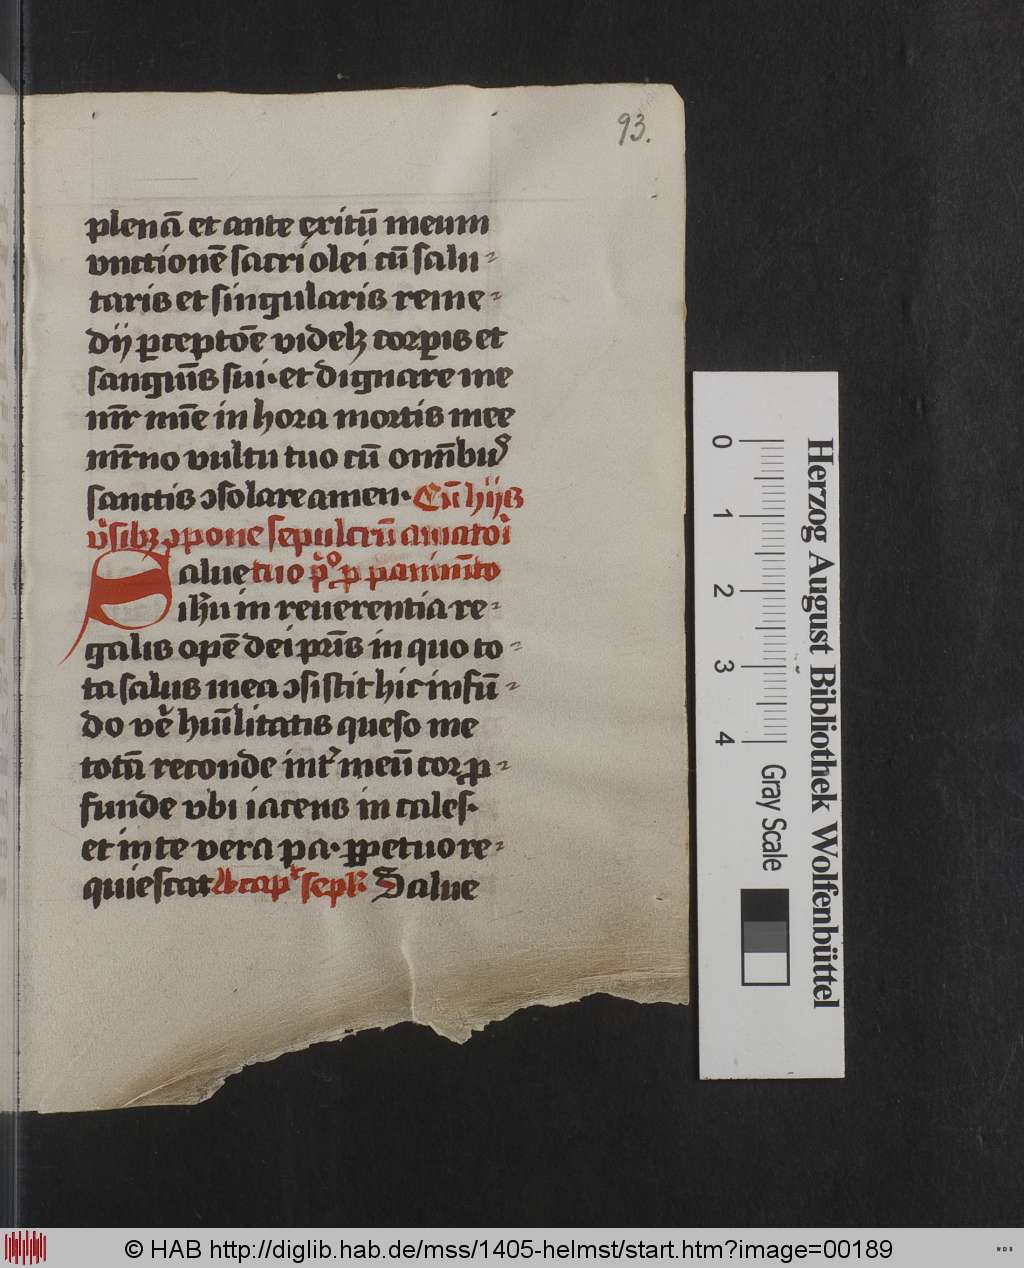 93.
plenā et ante exitū meum
vnctionē sacri olei cū salu-
taris et singularis reme-
dij ꝑceptōe videlꝫ corꝑis et
sanguīs sui· et dignare me
mr̄ mīe in hora mortis mee
mr̄no vultu tuo cū om̄ibus
sanctis ɔsolare amen· Cū hijs
v̓sibꝫ ɔpone sepulcrū amatori
Salue tuo
ihū in reuerentia re-
galis opē dei pr̄is in quo to-
ta salus mea ɔsistit hic infū-
do vē hūilitatis queso me
totā reconde int̓ meū corꝑ-
funde vbi iacens in cales·
et in te vera pa· ꝑpetuo re-
quiescat Salue
0 1 2 3 4
Gray Scale
Herzog August Bibliothek Wolfenbüttel
© HAB http://diglib.hab.de/mss/1405-helmst/start.htm?image=00189